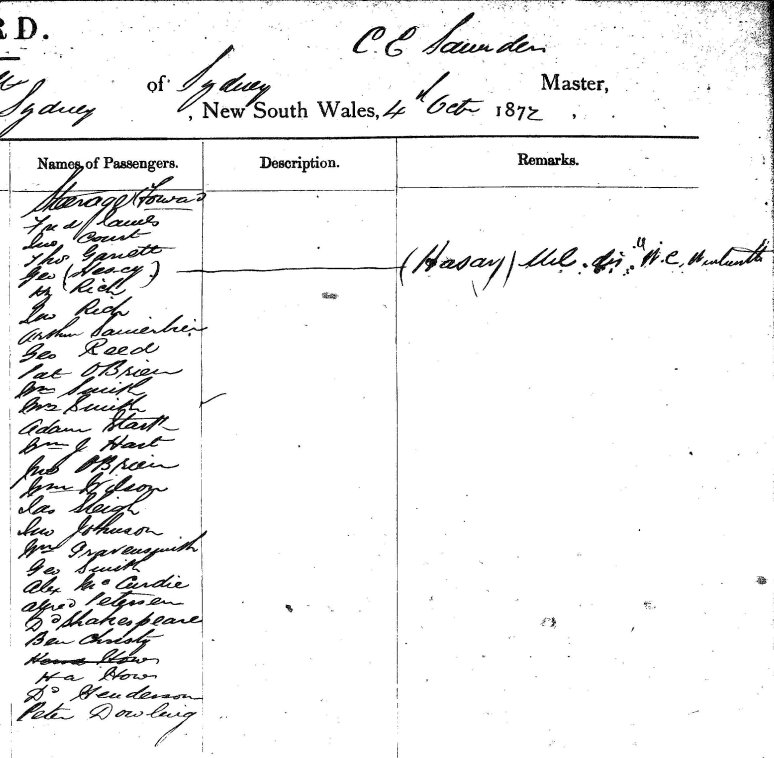 RD.
C. E Saunders
of Sydney Master,
Sydney, New South Wales, 4th Octr 1872,
Names of Passengers. Description. Remarks.
Steerage Forward
Fred James
Jno Court
Thos Garrett
Geo (Heacy) (Hasay)
Hy Rich
Jno Rich
Arthur
Geo Reed
Pat OBrien
Wm Smith
Mrs Smith
Adam Start
Wm J Hart
Jno OBrien
Wm Wilson
Jas Sleigh
Jno Johnson
Wm Gravensmith
Geo Smith
Alex McCurdie
Alfred Petersen
Do Shakespeare
Ben Christy
How
Ha How
Do Henderson
Peter Dowling